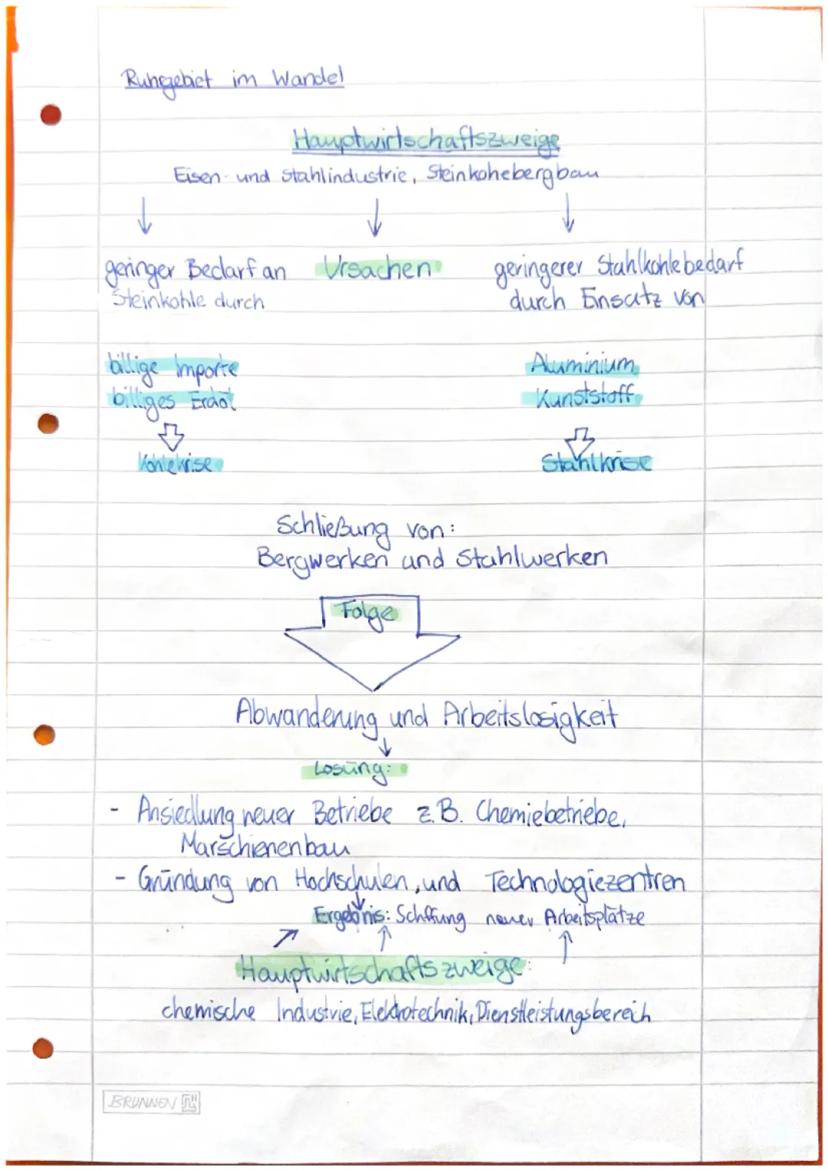 Ruhrgebiet im Wandel
Hauptwirtschaftszweige
Eisen- und Stahlindustrie, Steinkohebergbau
geringer Bedarf an Ursachen geringerer Stahlkohlebedarf
Steinkohle durch durch Einsatz von
billige Importe Aluminium
billiges Erdöl Kunststoff
Kohlekrise Stahlkrise
Schließung von:
Bergwerken und Stahlwerken
Folge
Abwanderung und Arbeitslosigkeit
Lösung:
- Ansiedlung neuer Betriebe z.B. Chemiebetriebe,
Marschienenbau
- Gründung von Hochschulen, und Technologiezentren
Ergebnis: Schffung neuer Arbeitsplätze
Hauptwirtschaftszweige:
chemische Industrie, Elektrotechnik, Dienstleistungsbereich
BRUNNEN